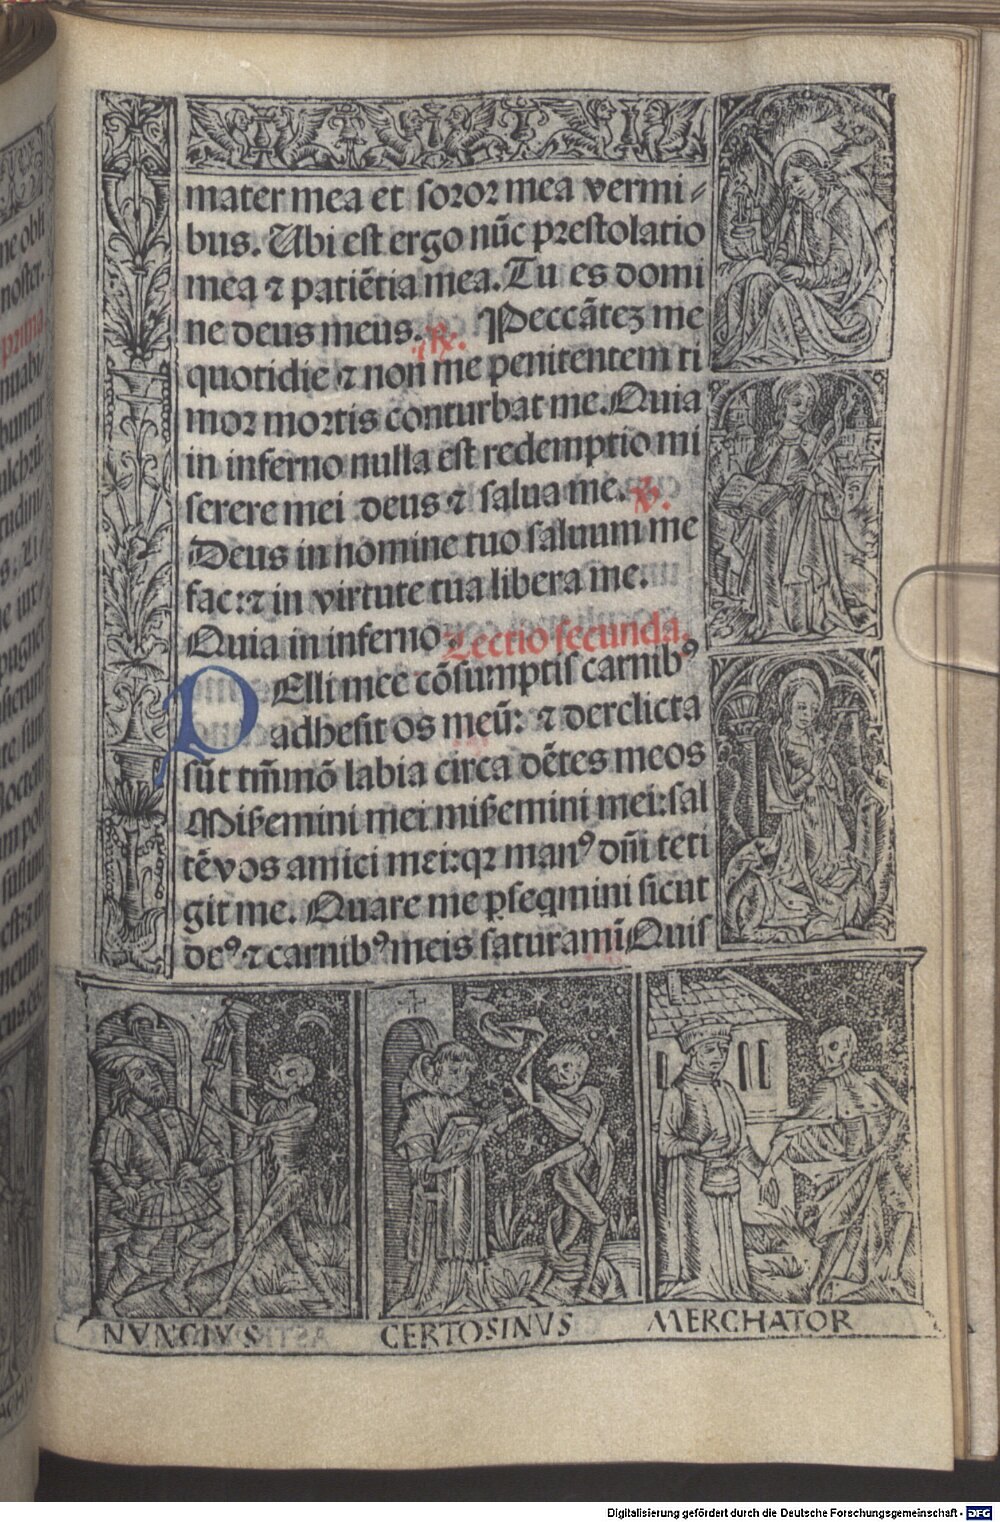 mater mea et soror mea vermi⸗
bus. Ubi est ergo nūc prestolatio
mea ⁊ patiētia mea. Tu es domi
ne deus meus. ℟. Peccātez me
quotidie ⁊ non me penitentem ti
mor mortis conturbat me. Quia
in inferno nulla est redemptio mi
serere mei deus ⁊ salua me. ℣.
Deus in nomine tuo saluum me
fac: ⁊ in virtute tua libera me.
Quia in inferno Lectio secunda.
PElli mee cōsumptis carnibꝰ
adhesit os meū: ⁊ derelicta
sūt tm̄mō labia circa dētes meos
Miẜemini mei miẜemini mei: sal
tē vos amici mei: qꝛ manꝰ dn̄i teti
git me. Quare me ꝑseqmini sicut
deꝰ ⁊ carnibꝰ meis saturamī Quis
NVNCIVS CERTOSINVS MERCHATOR
ne obli
noster.
prima
Digitalisierung gefördert durch die Deutsche Forschungsgemeinschaft - DFG